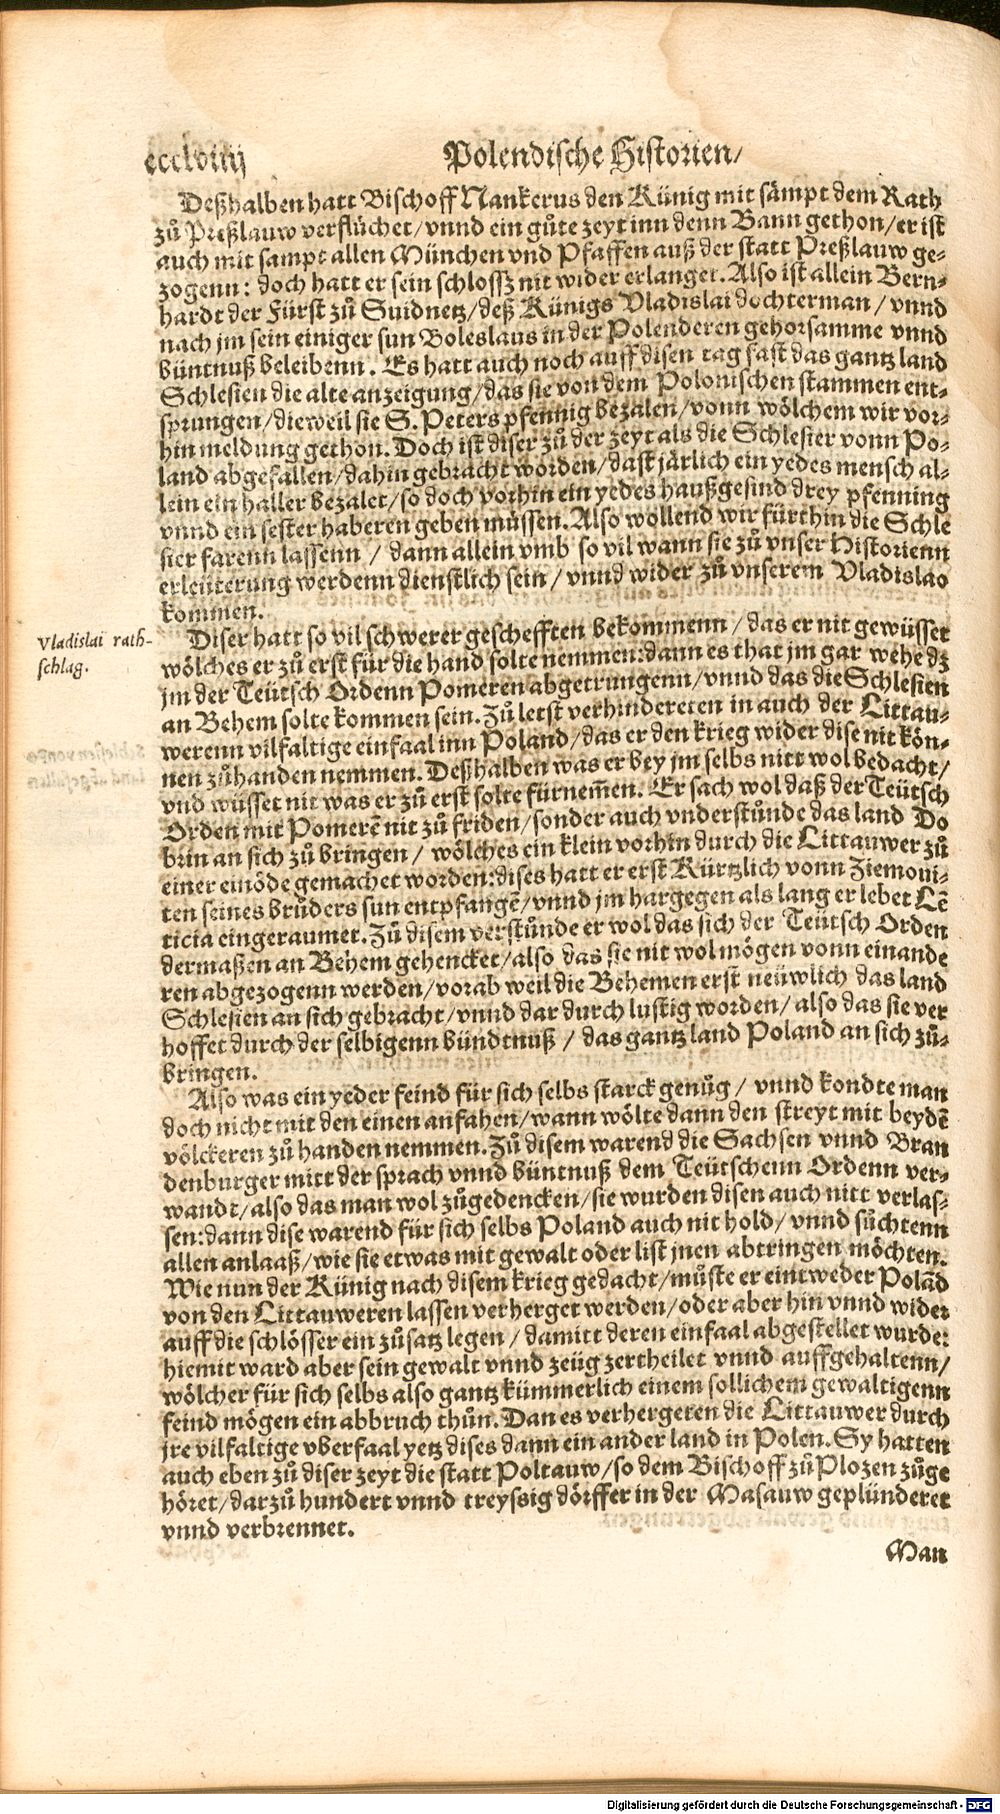 ccclviiij Polendische Historien/
Deßhalben hatt Bischoff Nankerus den Künig mit sämpt dem Rath
zů Preßlauw verflůchet/ vnnd ein gůte zeyt inn denn Bann gethon/ er ist
auch mit sampt allen München vnd Pfaffen auß der statt Preßlauw ge-
zogenn: doch hatt er sein schlossz nit wider erlanget. Also ist allein Bern-
hardt der Fürst zů Suidnetz/ deß Künigs Vladislai dochterman/ vnnd
nach jm sein einiger sun Boleslaus in der Polenderen gehorsamme vnnd
büntnuß beleibenn. Es hatt auch noch auff disen tag fast das gantz land
Schlesien die alte anzeigung/ das sie von dem Polonischen stammen ent-
sprungen/ dieweil sie S. Peters pfennig bezalen/ vonn wölchem wir vor-
hin meldung gethon. Doch ist diser zů der zeyt als die Schlesier vonn Po-
land abgefallen/ dahin gebracht worden/ dast järlich ein yedes mensch al-
lein ein haller bezalet/ so doch vorhin ein yedes haußgesind drey pfenning
vnnd ein sester haberen geben müssen. Also wollend wir fürthin die Schle
sier farenn lassenn / dann allein vmb so vil wann sie zů vnser Historienn
erleüterung werdenn dienstlich sein / vnnd wider zů vnserem Vladislao
kommen.
Vladislai rath-
schlag.
Diser hatt so vil schwerer geschefften bekommenn / das er nit gewüsset
wölches er zů erst für die hand solte nemmen: dann es that jm gar wehe dz
jm der Teütsch Ordenn Pomeren abgetrungenn/ vnnd das die Schlesien
an Behem solte kommen sein. Zů letst verhindereten in auch der Littau-
werenn vilfaltige einfaal inn Poland/ das er den krieg wider dise nit kön-
nen zůhanden nemmen. Deßhalben was er bey jm selbs nitt wol bedacht/
vnd wüsset nit was er zů erst solte fürnem̃en. Er sach wol daß der Teütsch
Orden mit Pomerẽ nit zů friden/ sonder auch vnderstůnde das land Do
brin an sich zů bringen / wölches ein klein vorhin durch die Littauwer zů
einer einöde gemachet worden: dises hatt er erst Kürtzlich vonn Ziemoui-
ten seines brůders sun entpfangẽ/ vnnd jm hargegen als lang er lebet Lẽ
ticia eingeraumet. Zů disem verstůnde er wol das sich der Teütsch Orden
dermaßen an Behem gehencket/ also das sie nit wol mögen vonn einande
ren abgezogenn werden/ vorab weil die Behemen erst neüwlich das land
Schlesien an sich gebracht/ vnnd dar durch lustig worden/ also das sie ver
hoffet durch der selbigenn bündtnuß / das gantz land Poland an sich zů-
bringen.
Also was ein yeder feind für sich selbs starck genůg / vnnd kondte man
doch nicht mit den einen anfahen/ wann wölte dann den streyt mit beydẽ
völckeren zů handen nemmen. Zů disem warend die Sachsen vnnd Bran
denburger mitt der sprach vnnd büntnuß dem Teütschenn Ordenn ver-
wandt/ also das man wol zůgedencken/ sie wurden disen auch nitt verlas-
sen: dann dise warend für sich selbs Poland auch nit hold/ vnnd sůchtenn
allen anlaaß/ wie sie etwas mit gewalt oder list jnen abtringen möchten.
Wie nun der Künig nach disem krieg gedacht/ můste er eintweder Polãd
von den Littauweren lassen verherget werden/ oder aber hin vnnd wider
auff die schlösser ein zůsatz legen / damitt deren einfaal abgestellet wurde:
hiemit ward aber sein gewalt vnnd zeüg zertheilet vnnd auffgehaltenn/
wölcher für sich selbs also gantz kümmerlich einem sollichem gewaltigenn
feind mögen ein abbruch thůn. Dan es verhergeten die Littauwer durch
jre vilfaltige vberfaal yetz dises dann ein ander land in Polen. Sy hatten
auch eben zů diser zeyt die statt Poltauw/ so dem Bischoff zů Plozen zůge
höret/ darzů hundert vnnd treyssig dörffer in der Masauw geplünderet
vnnd verbrennet.
Man
Digitalisierung gefördert durch die Deutsche Forschungsgemeinschaft - DFG